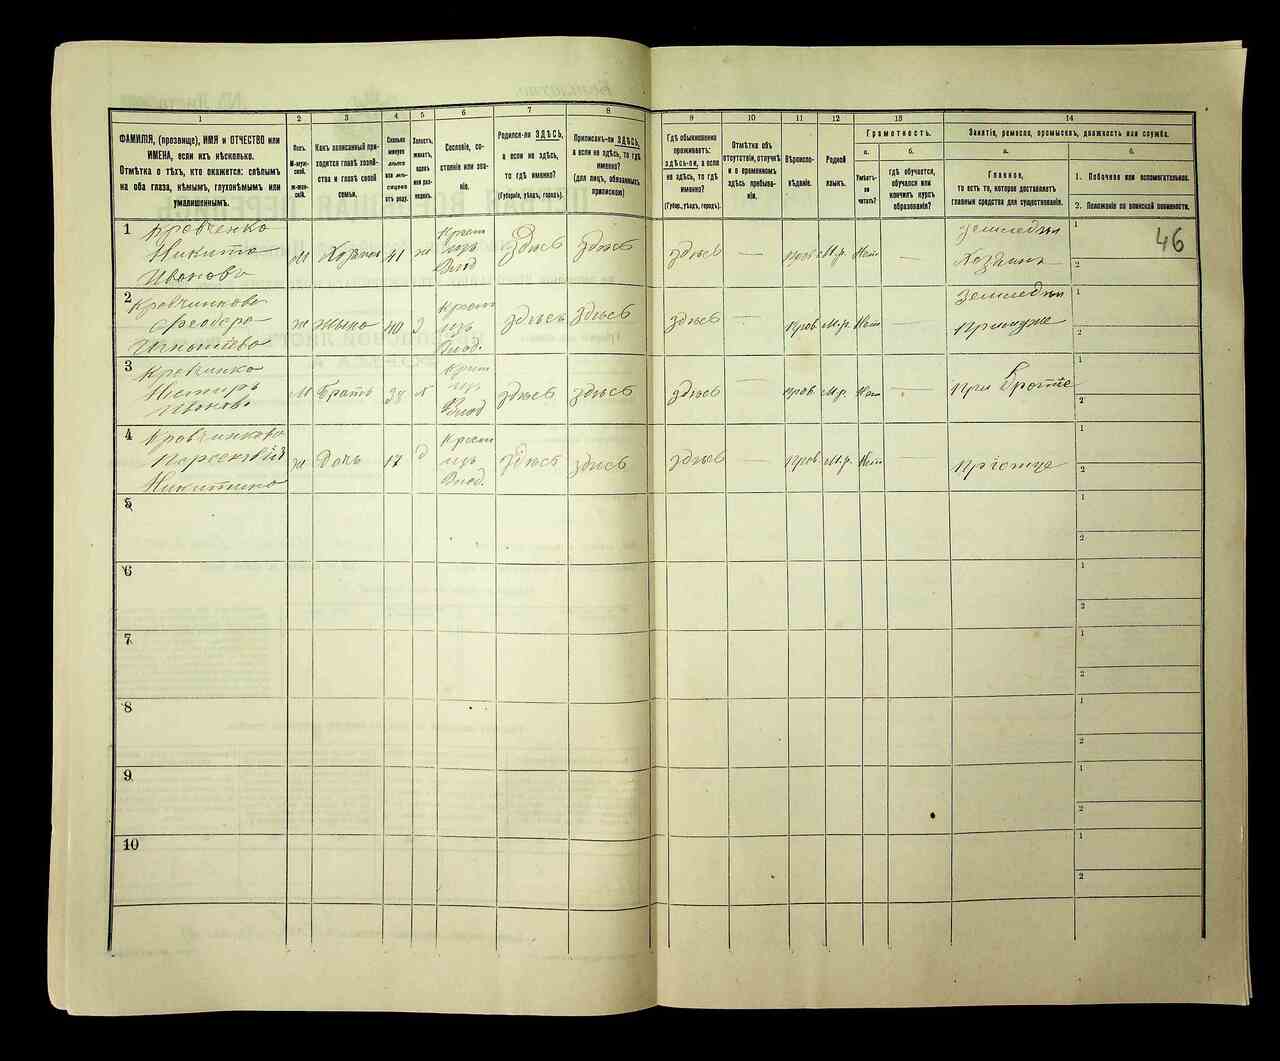 1 2 3 4 5 6 7 8 9 10 11 12 13 14
ФАМИЛІЯ, (прозвище), ИМЯ и ОТЧЕСТВО или
ИМЕНА, если ихъ нѣсколько.
Отмѣтка о тѣхъ, кто окажется: слѣпымъ
на оба глаза, нѣмымъ, глухонѣмымъ или
умалишеннымъ.
Полъ.
М-мужской.
ж-женскій.
Какъ записанный приходится
главѣ хозяйства
и главѣ своей
семьи.
Сколько
минуло
лѣтъ
отъ роду.
Холостъ,
женатъ,
вдовъ
или разведенъ.
Сословіе, состояніе
или званіе.
Родился-ли ЗДѢСЬ,
а если не здѣсь,
то гдѣ именно?
(Губернія, уѣздъ, городъ).
Приписанъ-ли ЗДѢСЬ,
а если не здѣсь, то гдѣ
именно?
(для лицъ, обязанныхъ
припискою)
Гдѣ обыкновенно
проживаетъ:
здѣсь-ли, а если
не здѣсь, то гдѣ
именно?
(Губер., уѣздъ, городъ).
Отмѣтка объ
отсутствіи, отлучкѣ
и о временномъ
здѣсь пребываніи.
Вѣроисповѣданіе.
Родной
языкъ.
Грамотность.
а.
Умѣетъ-ли
читать?
б.
гдѣ обучается,
обучался или
кончилъ курсъ
образованія?
Занятіе, ремесло, промыселъ, должность или служба.
а.
Главное,
то есть то, которое доставляетъ
главныя средства для существованія.
б.
1. Побочное или вспомогательное.
2. Положеніе по воинской повинности.
46
1 Кравченко
Никита
Иванова
м Хозяинъ 41 ж
Крест
изъ
Влад
здѣсь здѣсь здѣсь — Прав М.р. Нет —
Земледел
Хозяинъ
1
2
2 Кравчинкова
Феодора
Игнатѣва
ж Жына 40 З
Крест
изъ
Влад.
здѣсь здѣсь здѣсь — Прав М.р. Нет —
Земледел
При муже
1
2
3 Кравчинко
Нестиръ
Иванова
М Братъ
Крест
изъ
Влад
здѣсь здѣсь здѣсь — Прав М.р. Нет —
При Братте
1
2
4 Кравчинкова
Никитина
ж Дочь 17 д
Крест
изъ
Влад.
здѣсь здѣсь здѣсь — Прав М.р. Нет —
При отце
1
2
5
1
2
6
1
2
7
1
2
8
1
2
9
1
2
10
1
2